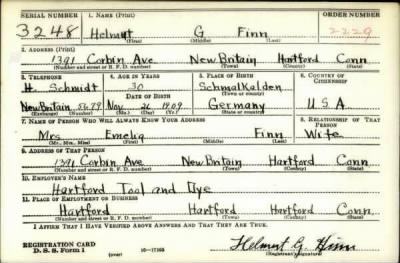 SERIAL NUMBER 1. NAME (Print) ORDER NUMBER
3248 Helmut G Finn 2229
(First) (Middle) (Last)
2. ADDRESS (Print)
1391 Corbin Ave New Britain Hartford Conn
(Number and street or R. F. D. number) (Town) (County) (State)
3. TELEPHONE 4. AGE IN YEARS 5. PLACE OF BIRTH 6. COUNTRY OF CITIZENSHIP
H. Schmidt 30 Schmalkalden
DATE OF BIRTH (Town or county)
New Britain Nov 26 1909 Germany U.S.A
(Exchange) (Number) (Mo.) (Day) (Yr.) (State or country)
7. NAME OF PERSON WHO WILL ALWAYS KNOW YOUR ADDRESS 8. RELATIONSHIP OF THAT PERSON
Mrs Emelia Finn Wife
(Mr., Mrs., Miss) (First) (Middle) (Last)
9. ADDRESS OF THAT PERSON
1391 Corbin Ave New Britain Hartford Conn
(Number and street or R. F. D. number) (Town) (County) (State)
10. EMPLOYER'S NAME
Hartford Tool and Dye
11. PLACE OF EMPLOYMENT OR BUSINESS
Hartford Hartford Conn.
(Number and street or R. F. D. number) (Town) (County) (State)
I AFFIRM THAT I HAVE VERIFIED ABOVE ANSWERS AND THAT THEY ARE TRUE.
REGISTRATION CARD
D. S. S. Form 1 (over) Helmut G. Finn
(Registrant's signature)